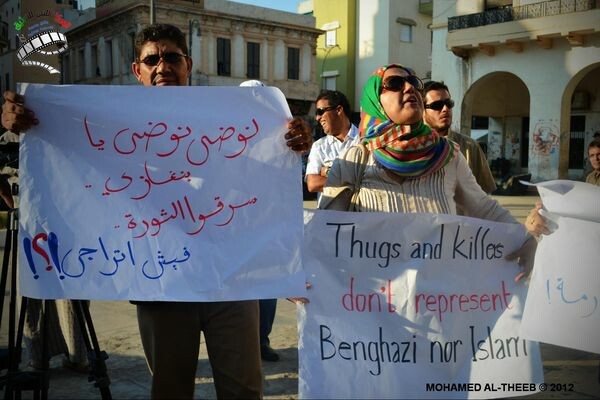 نوضي نوضي يا
بنغازي..
سرقوا الثورة..
فيش اتراجي!؟!
Thugs and killers
don't represent
Benghazi nor Islam
MOHAMED AL-THEEB © 2012